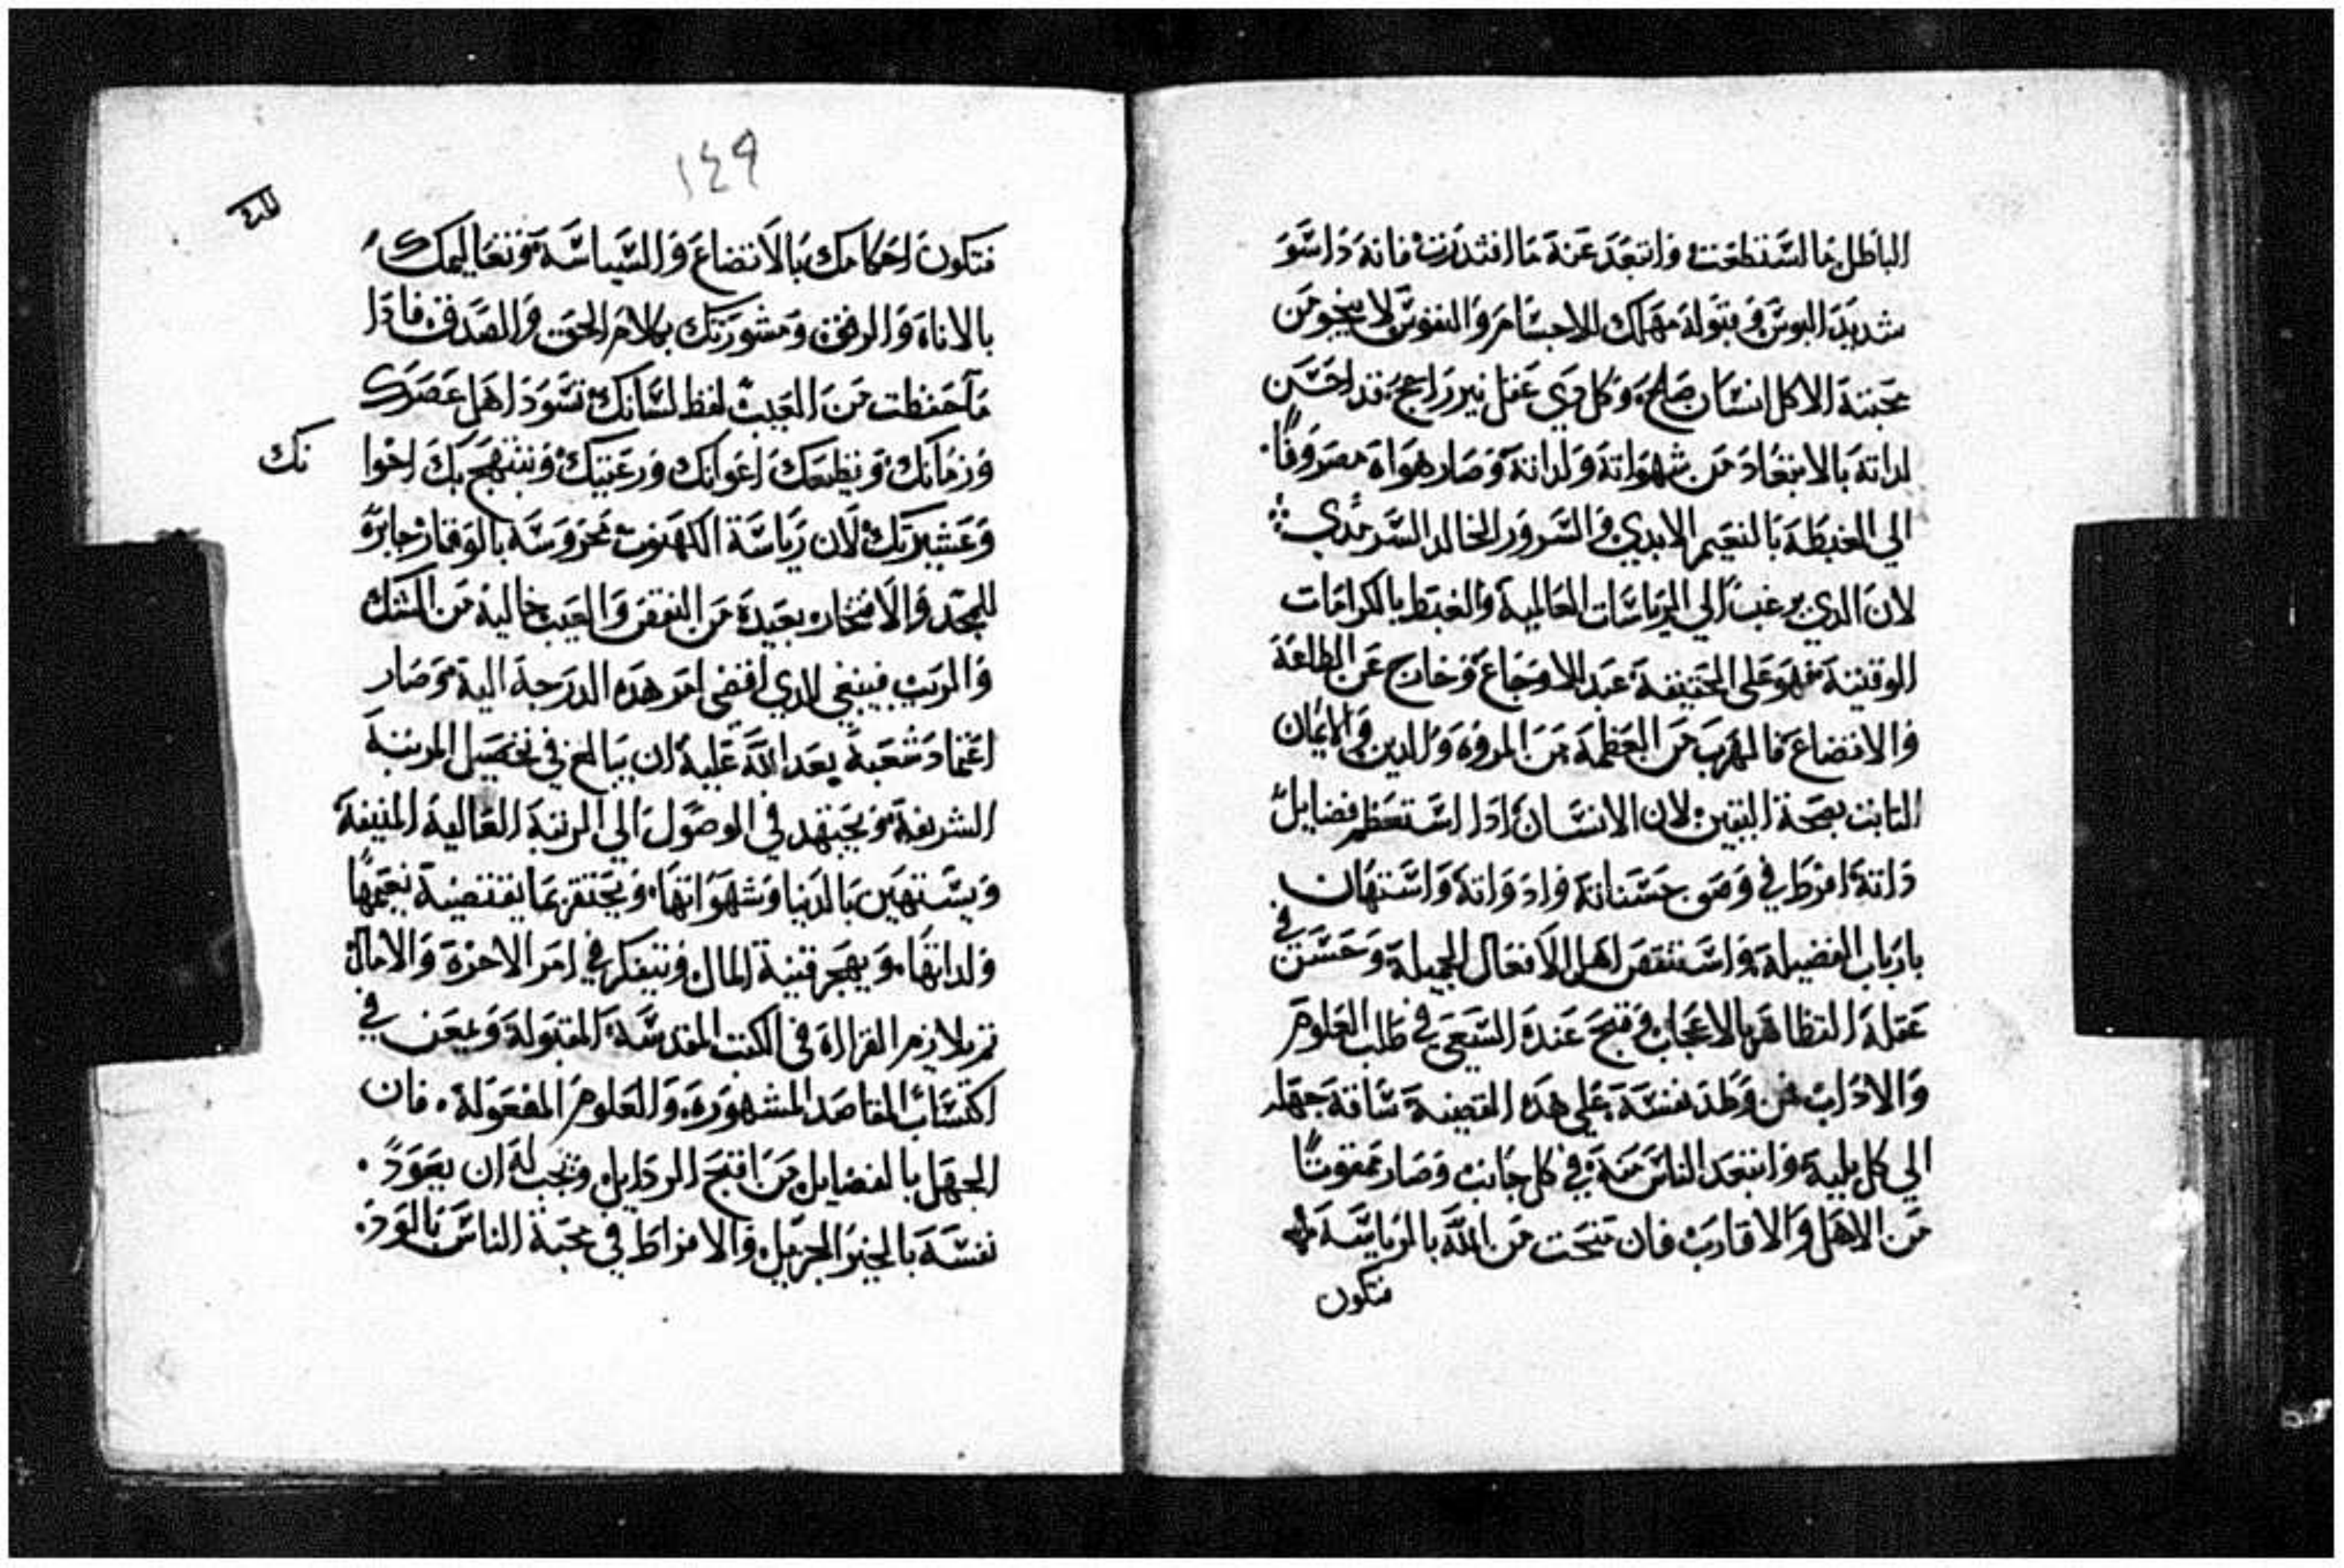 الباطل ما استطعت وابتعد عنه ما اقتدرت فانه داسو
شديد البوس وقبوله مهلك للاجسام والنفوس لا ينجو من
محبته الا كل انسان صالح وكل دي عقل نير راجح قد احسن
لداته بالابتعاد من شهواته ولداته وصار هواه مصروفًا
الي الغبطة بالنعيم الابدي والسرور الخالد السرمدي
لان الدي يرغب الي الرياسات العالمية والغبط بالكرامات
الوقتية فهو علي الحقيقة عبد للاوجاع وخارج عن الطاعة
والاتضاع فالهرب من العظمة من المروة والدين والايمان
التابت بصحة اليقين لان الانسان ادا استعظم فضايل
داته افرط في وصف حسناته وادواته واستهان
بارباب الفضيلة واستنقص اهل الافعال الجميلة وحسن في
عقله التظاهر بالاعجاب وقبح عنده السعي في طلب العلوم
والاداب فمن وطد نفسه علي هده القضية ساقه جهله
الي كل بلية وابتعد الناس منه في كل جانب وصار ممقوتًا
من الاهل والاقارب فان منحت من الله بالرياسة
فتكون
١٤٩
فتكون احكامك بالاتضاع والسياسة وتعاليمك
بالاناة والرفق ومشورتك بكلام الحق والصدق فادا
ما حفظت من العيب لفظ لسانك تسود اهل عصرك
وزمانك ويطيعك اعوانك ورعيتك ويبتهج بك اخوا نك
وعشيرتك لان رياسة الكهنوت محروسة بالوقار حايزة
للمجد والافتخار بعيدة من النقص والعيب خالية من الشك
والريب فينبغي للدي افضي امر هده الدرجة اليه وصار
اعتماد شعبه بعد الله عليه ان يبالغ في تحصيل المرتبة
الشريفة ويجتهد في الوصول الي الرتبة العالية المنيفة
ويستهين بالدنيا وشهواتها ويحتقر بما يقتضيه نعيمها
ولداتها ويهجر قنية المال ويتفكر في امر الاخرة والامال
تم يلازم القراءة في الكتب المقدسة المقبولة ويمعن في
اكتساب المقاصد المشهورة والعلوم المفعولة فان
الجهل بالفضايل من اقبح الردايل ويجب له ان يعود
نفسه بالخير الجزيل والافراط في محبة الناس بالود